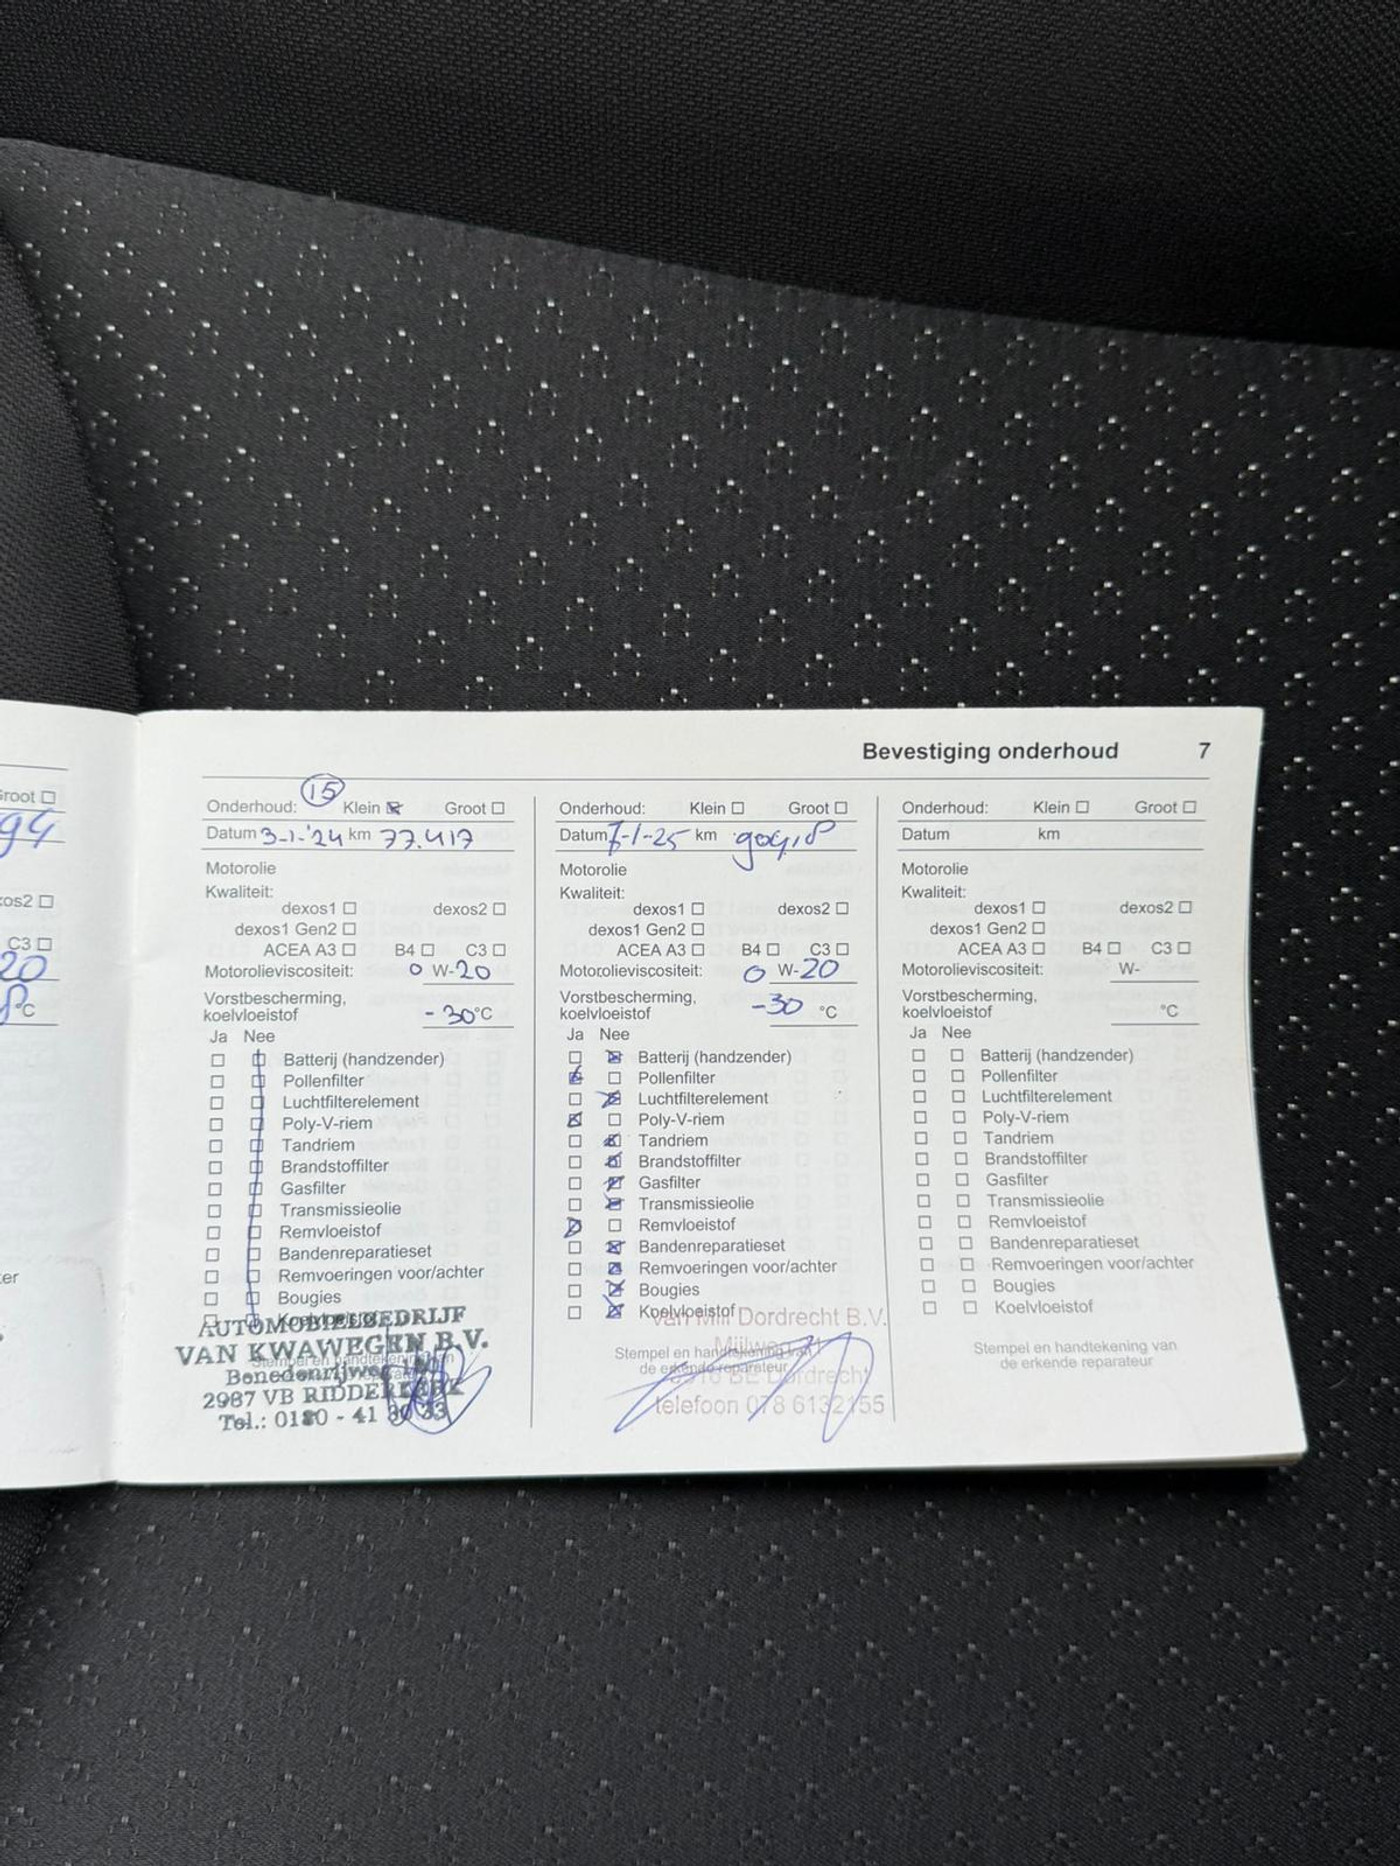 Groot
94
os2
C3
20
°C
er
Bevestiging onderhoud 7
15
Onderhoud: Klein Groot
Datum 3-1-'24 km 77.417
Motorolie
Kwaliteit:
dexos1 dexos2
dexos1 Gen2
ACEA A3 B4 C3
Motorolieviscositeit: 0 W-20
Vorstbescherming,
koelvloeistof -30°C
Ja Nee
Batterij (handzender)
Pollenfilter
Luchtfilterelement
Poly-V-riem
Tandriem
Brandstoffilter
Gasfilter
Transmissieolie
Remvloeistof
Bandenreparatieset
Remvoeringen voor/achter
Bougies
Koelvloeistof
AUTOMOBIELBEDRIJF
VAN KWAWEGEN B.V.
Benedenrijweg
2987 VB RIDDERKERK
Tel.: 0180 - 41
Onderhoud: Klein Groot
Datum 7-1-25 km
Motorolie
Kwaliteit:
dexos1 dexos2
dexos1 Gen2
ACEA A3 B4 C3
Motorolieviscositeit: 0 W-20
Vorstbescherming,
koelvloeistof -30 °C
Ja Nee
Batterij (handzender)
Pollenfilter
Luchtfilterelement
Poly-V-riem
Tandriem
Brandstoffilter
Gasfilter
Transmissieolie
Remvloeistof
Bandenreparatieset
Remvoeringen voor/achter
Bougies
Koelvloeistof
Van Mill Dordrecht B.V.
Stempel en handtekening van
de erkende reparateur
Dordrecht
telefoon 078 6132155
Onderhoud: Klein Groot
Datum km
Motorolie
Kwaliteit:
dexos1 dexos2
dexos1 Gen2
ACEA A3 B4 C3
Motorolieviscositeit: W-
Vorstbescherming,
koelvloeistof °C
Ja Nee
Batterij (handzender)
Pollenfilter
Luchtfilterelement
Poly-V-riem
Tandriem
Brandstoffilter
Gasfilter
Transmissieolie
Remvloeistof
Bandenreparatieset
Remvoeringen voor/achter
Bougies
Koelvloeistof
Stempel en handtekening van
de erkende reparateur